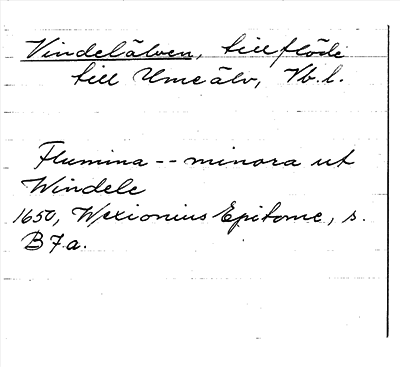 Vindelälven, tillflöde
till Ume älv, Vb.l.
Flumina -- minora ut
Windele
1650, Wexionius Epitome, s.
B7a.